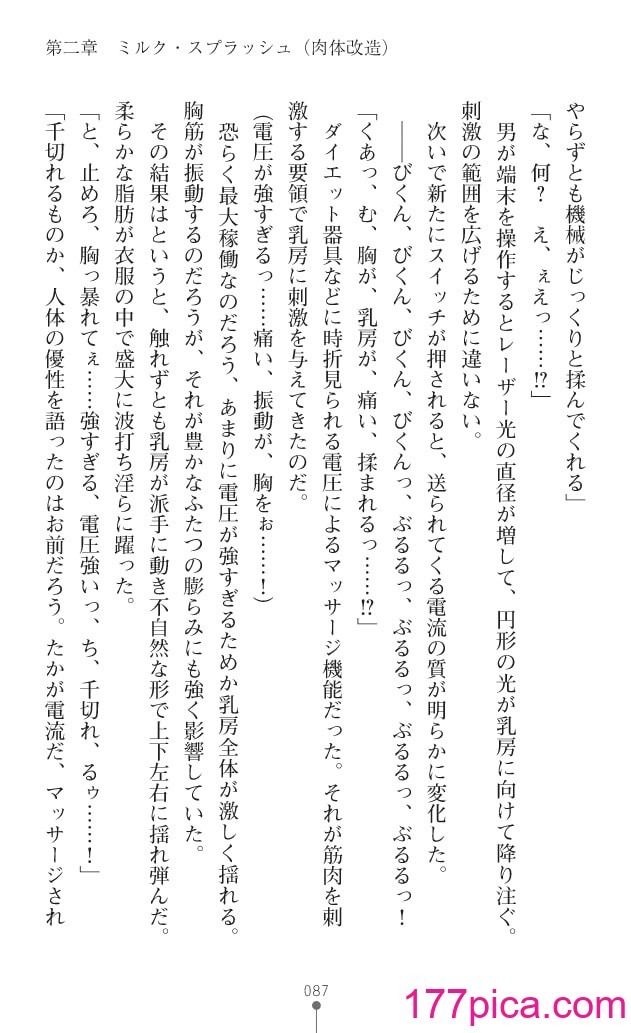 第二章　ミルク・スプラッシュ（肉体改造）
やらずとも機械がじっくりと揉んでくれる」
「な、何？　え、ぇえっ……!?」
男が端末を操作するとレーザー光の直径が増して、円形の光が乳房に向けて降り注ぐ。
刺激の範囲を広げるために違いない。
次いで新たにスイッチが押されると、送られてくる電流の質が明らかに変化した。
――びくん、びくん、びくん、びくんっ、ぶるるっ、ぶるるっ、ぶるるっ、ぶるるっ！
「くあっ、む、胸が、乳房が、痛い、揉まれるっ……!?」
ダイエット器具などに時折見られる電圧によるマッサージ機能だった。それが筋肉を刺
激する要領で乳房に刺激を与えてきたのだ。
（電圧が強すぎるっ……痛い、振動が、胸をぉ……！）
恐らく最大稼働なのだろう、あまりに電圧が強すぎるためか乳房全体が激しく揺れる。
胸筋が振動するのだろうが、それが豊かなふたつの膨らみにも強く影響していた。
その結果はというと、触れずとも乳房が派手に動き不自然な形で上下左右に揺れ弾んだ。
柔らかな脂肪が衣服の中で盛大に波打ち淫らに躍った。
「と、止めろ、胸っ暴れてぇ……強すぎる、電圧強いっ、ち、千切れ、るゥ……！」
「千切れるものか、人体の優性を語ったのはお前だろう。たかが電流だ、マッサージされ
087
177pica.com